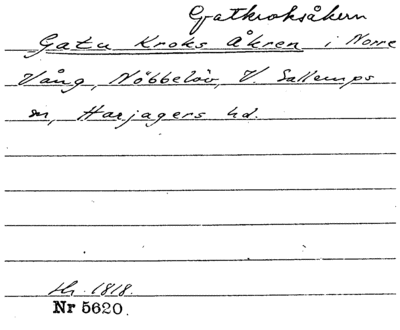 Gatkroksåkern
Gatu Kroks Åkren i Norre
Vång, Nöbbelöv, V. Sallerups
sn, Harjagers hd.
1818.
Nr 5620.